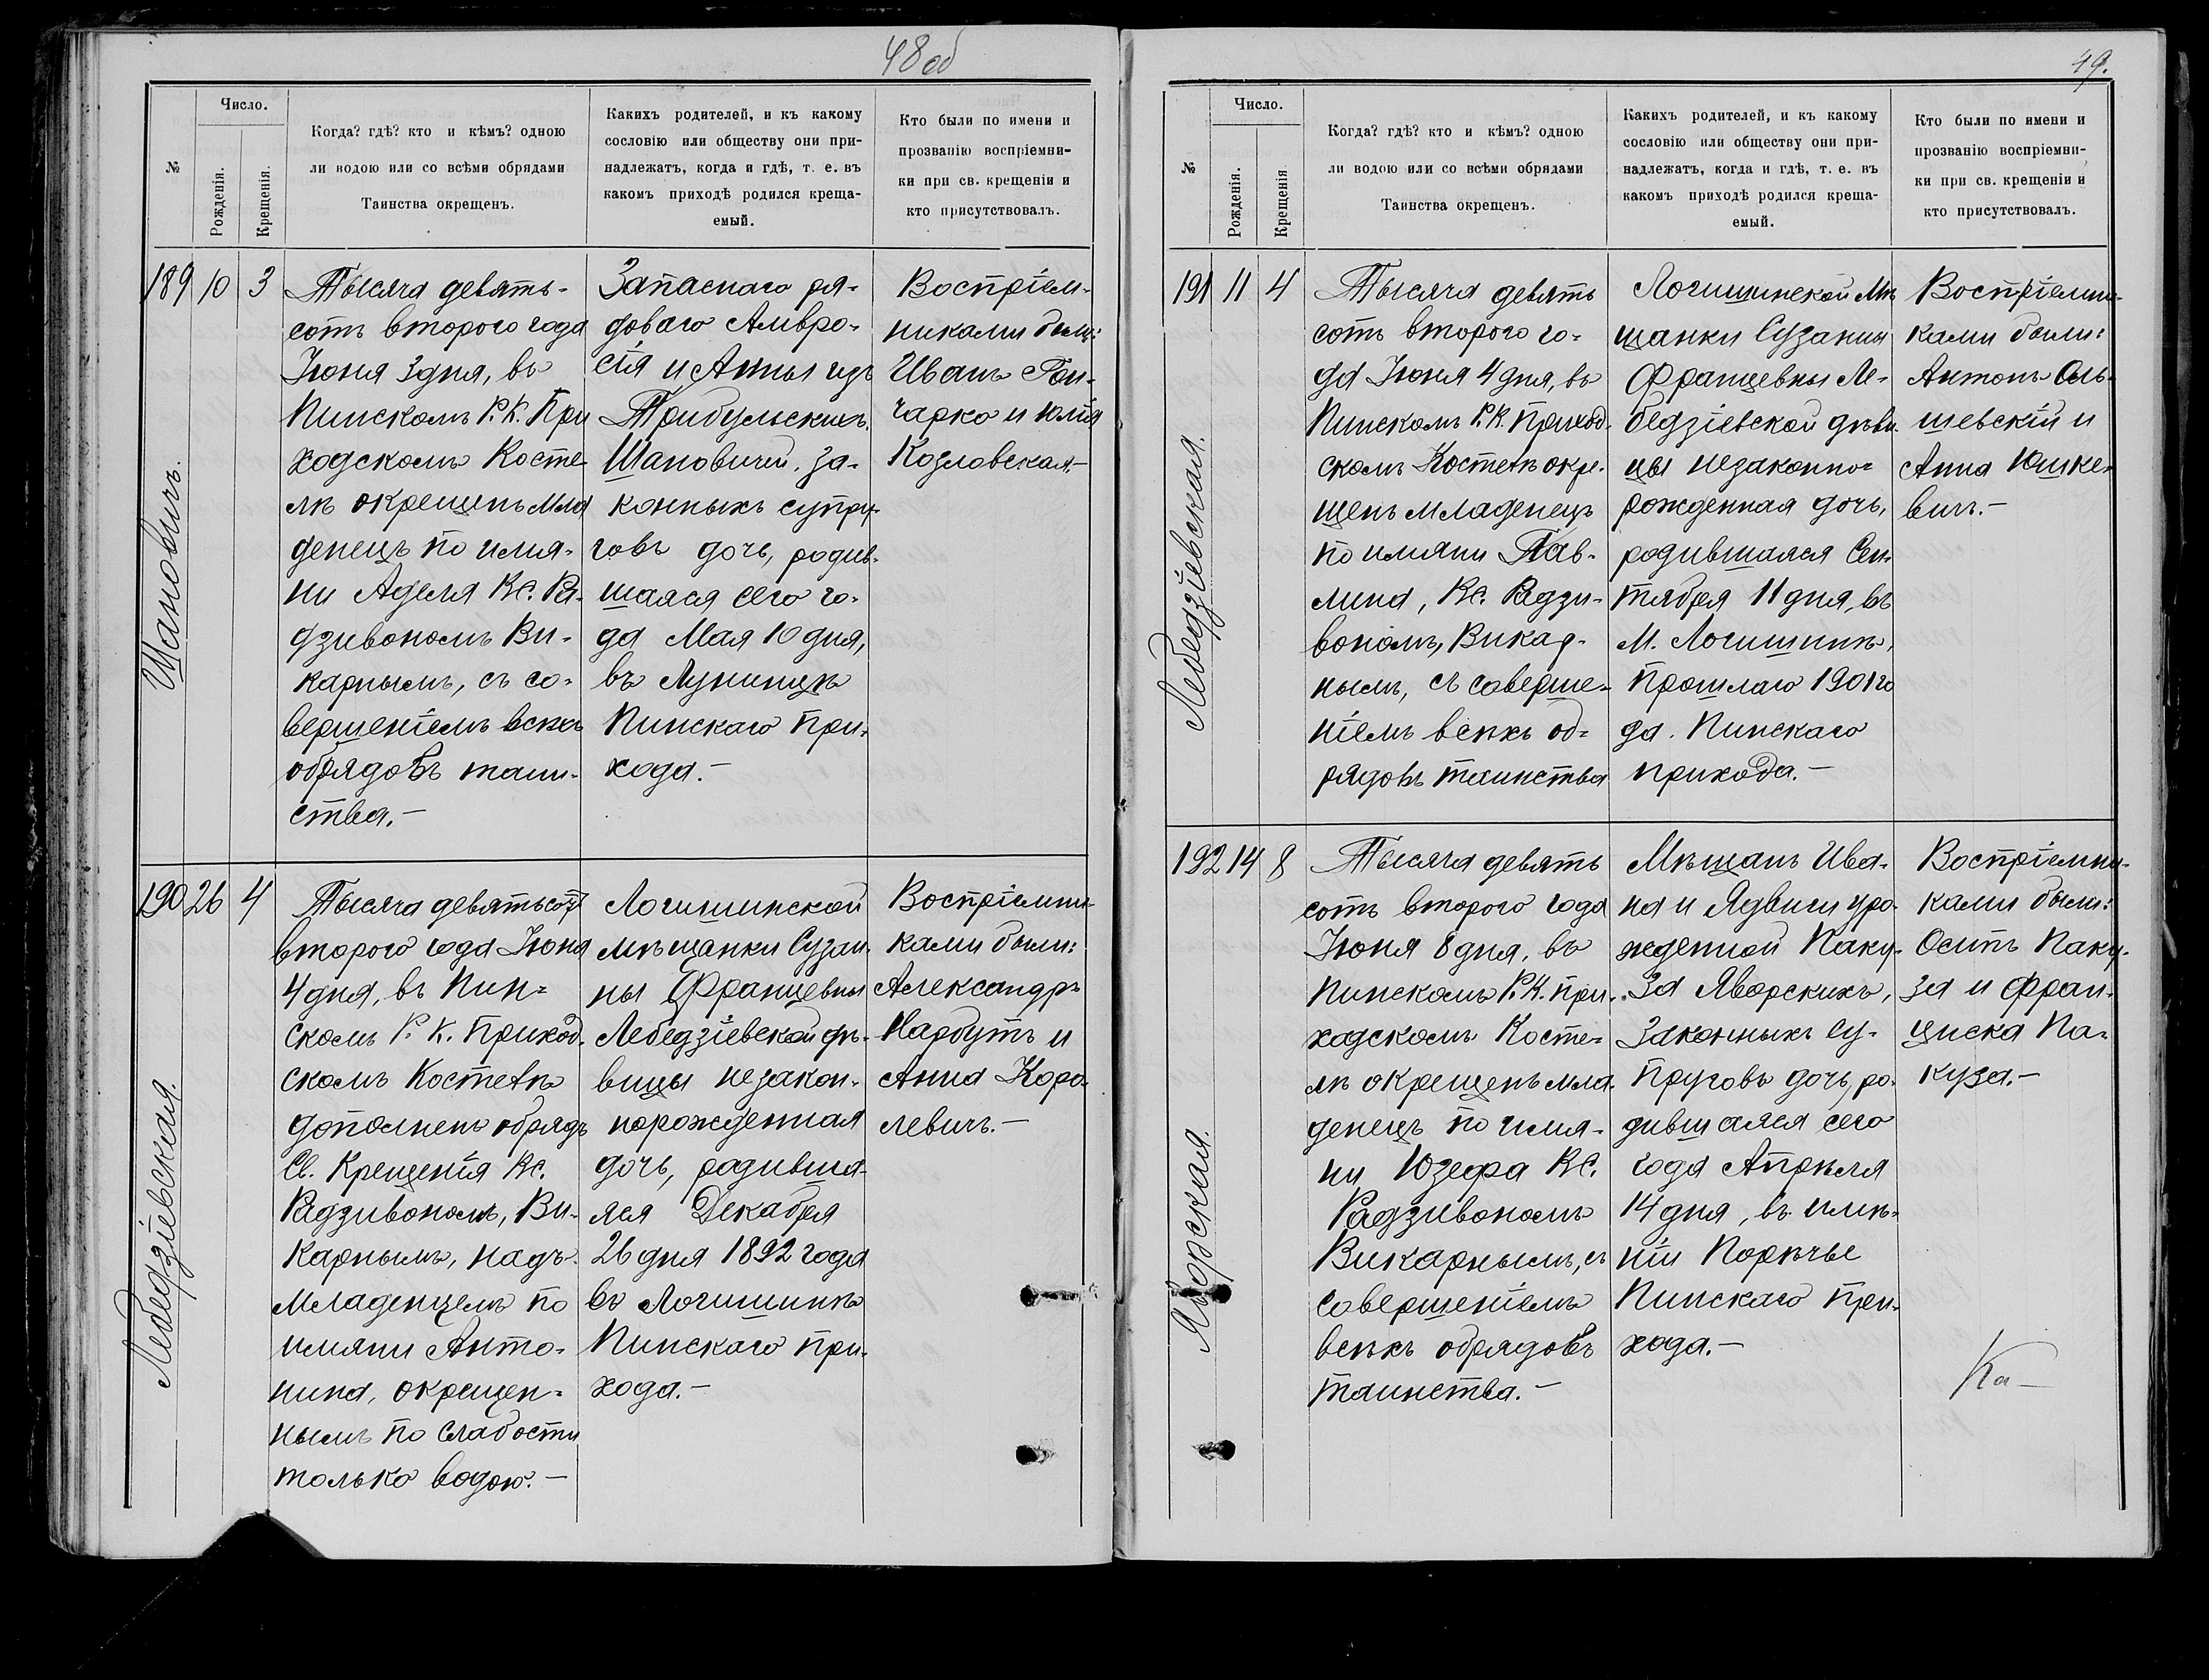 48 об
№
Число.
Рожденія.
Крещенія.
Когда? гдѣ? кто и кѣмъ? одною
ли водою или со всѣми обрядами
Таинства окрещенъ.
Какихъ родителей, и къ какому
сословію или обществу они при-
надлежатъ, когда и гдѣ, т. е. въ
какомъ приходѣ родился креща-
емый.
Кто были по имени и
прозванію воспріемни-
ки при св. крещеніи и
кто присутствовалъ.
189 10 3
Шановичъ.
Тысяча девять-
сотъ второго года
Іюня 3 дня, въ
Пинскомъ Р. К. При
ходскомъ Косте-
лѣ окрещенъ мла
денецъ по имя-
ни Аделя Кс. Ра-
дзивономъ Ви-
карнымъ, съ со-
вершеніемъ всѣхъ
обрядовъ таин-
ства.—
Запаснаго ря-
доваго Амвро-
сія и Анны изъ
Трибульскихъ
Шановичей, за-
конныхъ супру-
говъ дочь, родив-
шаяся сего го-
да Мая 10 дня,
въ Лунинцѣ
Пинскаго При-
хода.—
Воспріем-
никами были:
Иванъ Гон-
чарко и Юлія
Козловская.—
190 26 4
Лебедзіевская.
Тысяча девятьсотъ
второго года Іюня
4 дня, въ Пин=
скомъ Р. К. Приход-
скомъ Костелѣ
дополненъ обрядъ
Св. Крещенія Кс.
Радзивономъ, Ви-
карнымъ, надъ
младенцемъ по
имяни Анто-
нина, окрещен-
нымъ по слабости
только водою.—
Логишинской
мѣщанки Сузан-
ны Францевны
Лебедзіевской дѣ-
вицы незакон-
норожденная
дочь, родивша-
яся Декабря
26 дня 1892 года
въ Логишинѣ
Пинскаго при-
хода.—
Воспріемни-
ками были:
Александръ
Нарбутъ и
Анна Коро-
левичъ.—
49.
№
Число.
Рожденія.
Крещенія.
Когда? гдѣ? кто и кѣмъ? одною
ли водою или со всѣми обрядами
Таинства окрещенъ.
Какихъ родителей, и къ какому
сословію или обществу они при-
надлежатъ, когда и гдѣ, т. е. въ
какомъ приходѣ родился креща-
емый.
Кто были по имени и
прозванію воспріемни-
ки при св. крещеніи и
кто присутствовалъ.
191 11 4
Лебедзіевская.
Тысяча девять
сотъ второго го=
да Іюня 4 дня, въ
Пинскомъ Р. К. Приход-
скомъ Костелѣ окре-
щенъ младенецъ
по имяни Пав-
лина, Кс. Радзи-
вономъ, Викар-
нымъ, съ соверше-
ніемъ всѣхъ об=
рядовъ таинства
Логишинской мѣ
щанки Сузанны
Францевны Ле-
бедзіевской дѣви-
цы незаконно=
рожденная дочь,
родившаяся Сен-
тября 11 дня, въ
М. Логишинѣ,
прошлаго 1901 го
да. Пинскаго
прихода.—
Воспріемни-
ками были:
Антонъ Оль-
шевскій и
Анна Юшке-
вичъ.—
192 14 8
Яворская.
Тысяча девять
сотъ второго года
Іюня 8 дня, въ
Пинскомъ Р. К. при-
ходскомъ Косте=
лѣ окрещенъ мла-
денецъ по имя-
ни Юзефа Кс.
Радзивономъ
Викарнымъ, съ
совершеніемъ
всѣхъ обрядовъ
таинства.—
Мѣщанъ Ива-
на и Ядвиги уро-
жденной Паку-
за Яворскихъ,
законныхъ су-
пруговъ дочь, ро-
дившаяся сего
года Апрѣля
14 дня, въ имѣ-
ніи Порѣчье
Пинскаго при-
хода.—
Воспріемни-
ками были:
Осипъ Паку-
за и Фран-
циска Па-
куза.—
Ка—